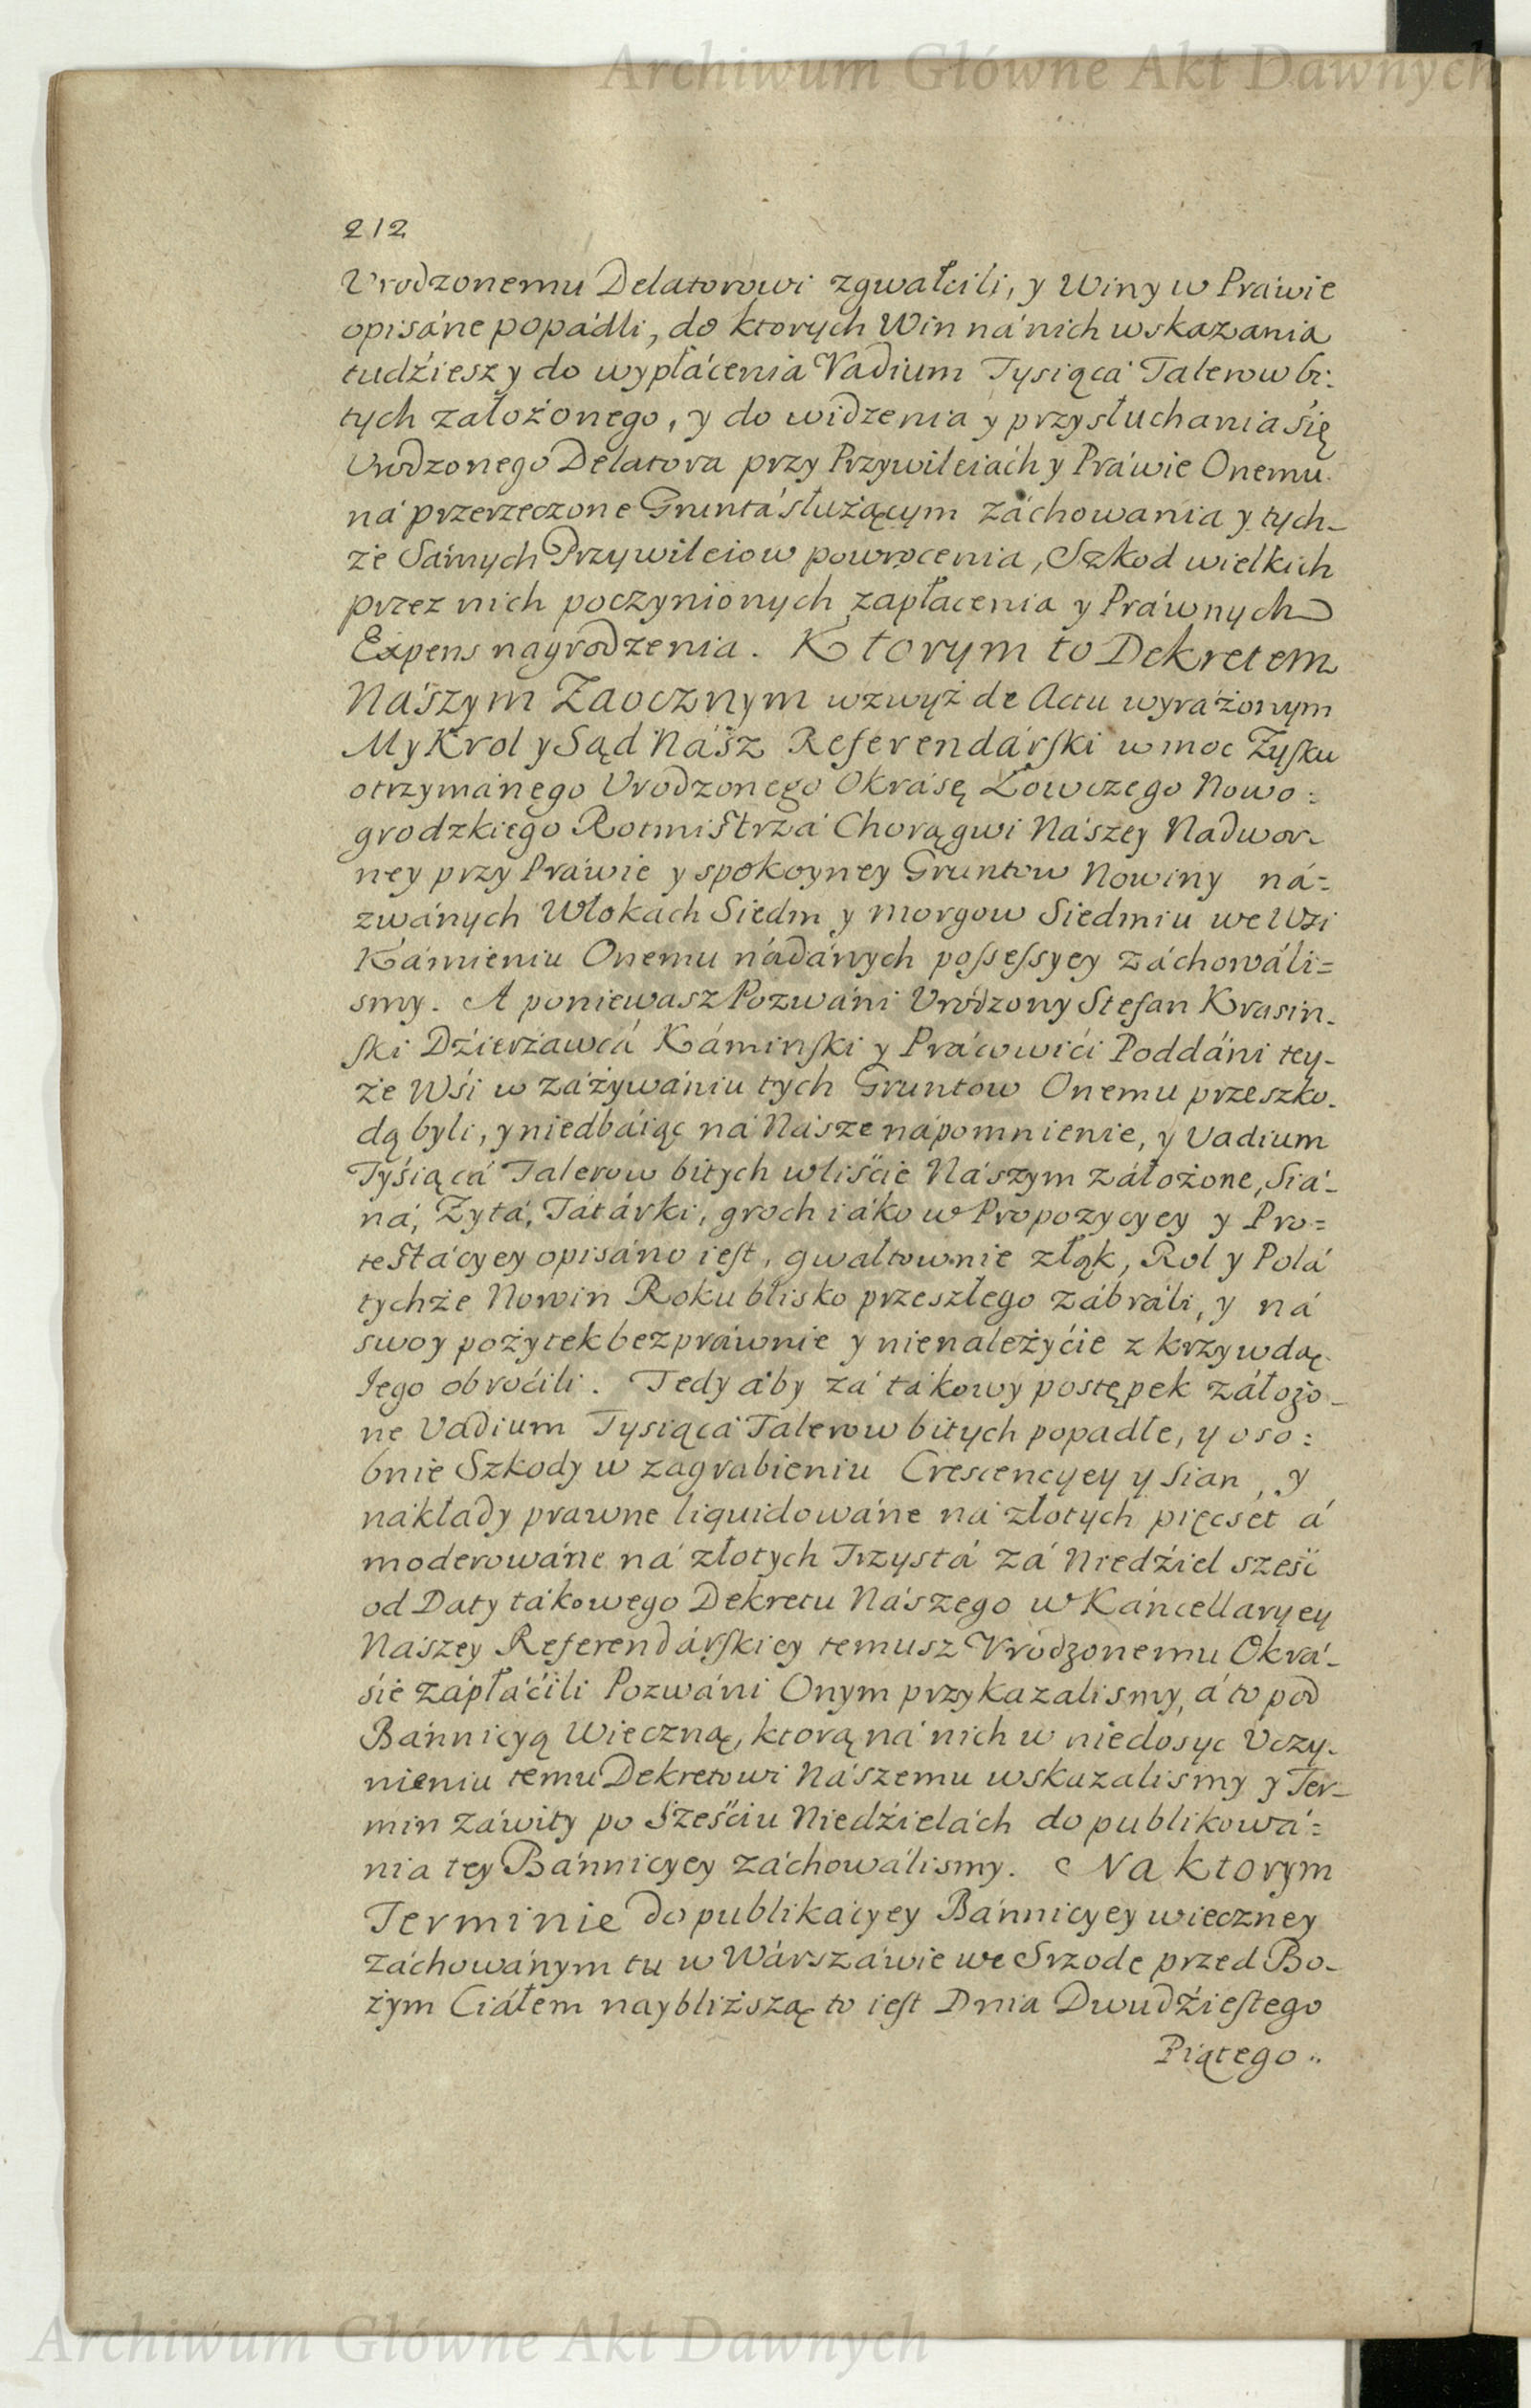 Archiwum Główne Akt Dawnych
212
Vrodzonemu Delatorowi zgwałcili, y Winy w Práwie
opisáne popádli, do ktorych Win ná nich wskazania
tudźiesz y do wypłácenia Vadium Tysiącá Talerow bi:
tych założonego, y do widzenia y przysłuchania się
Urodzonego Delatora przy Przywileiách y Práwie Onemu
ná przerzeczone Gruntá służącym záchowania y tych-
że Sámych Przywileiow powrocenia, Szkod wielkich
przez nich poczynionych zapłacenia y Práwnych
Expens nagrodzenia. Ktorym to Dekretem
Nászym Zaocznym wzwyż de Actu wyráżonym
My Krol y Sąd Nász Referendárski w moc Zysku
otrzymánego Urodzonego Okrásę Łowczego Nowo:
grodzkiego Rotmistrzá Chorągwi Nászey Nadwor-
ney przy Práwie y spokoyney Gruntow Nowiny ná=
zwánych Włokach Siedm y morgow Siedmiu we Wsi
Kámieniu Onemu nádánych possessyey záchowáli=
smy. A poniewasz Pozwáni Urodzony Stefan Krasin-
ski Dźierżawcá Káminski y Prácowići Poddáni tey-
że Wśi w záżywániu tych Gruntow Onemu przeszko-
dą byli, y niedbáiąc ná Násze nápomnienie, y Vadium
Tyśiącá Talerow bitych w liśćie Nászym záłożone, Siá-
ná, Zytá, Tátárki, groch iáko w Propozycyey y Pro=
testácyey opisáno iest, gwałtownie złąk, Rol y Polá
tychże Nowin Roku blisko przeszłego zábráli, y ná
swoy pożytek bezpráwnie y nienależyćie z krzywdą
Iego obroćili. Tedy áby zá tákowy postępek záłożo-
ne Vadium Tysiącá Talerow bitych popadłe, y oso:
bnie Szkody w zagrabieniu Crescencyey y Sian, y
nakłady prawne liquidowáne ná złotych pięcset á
moderowáne ná złotych Trzystá zá Niedźiel sześć
od Daty tákowego Dekretu Nászego w Káncellaryey
Nászey Referendárskiey temusz Vrodzonemu Okrá-
śie zápłáćili Pozwáni Onym przykazalismy, á to pod
Bánnicyą Wieczną, ktorą ná nich w niedosyc Uczy-
nieniu temu Dekretowi Nászemu wskazalismy y Ter-
min záwity po Sześćiu Niedźielách do publikowá=
nia tey Bánnicyey záchowálismy. Na ktorym
Terminie do publikácyey Bánnicyey wieczney
záchowánym tu w Wárszáwie we Srzode przed Bo-
żym Ciáłem naybliższą to iest Dnia Dwudźiestego
Piątego
Archiwum Główne Akt Dawnych